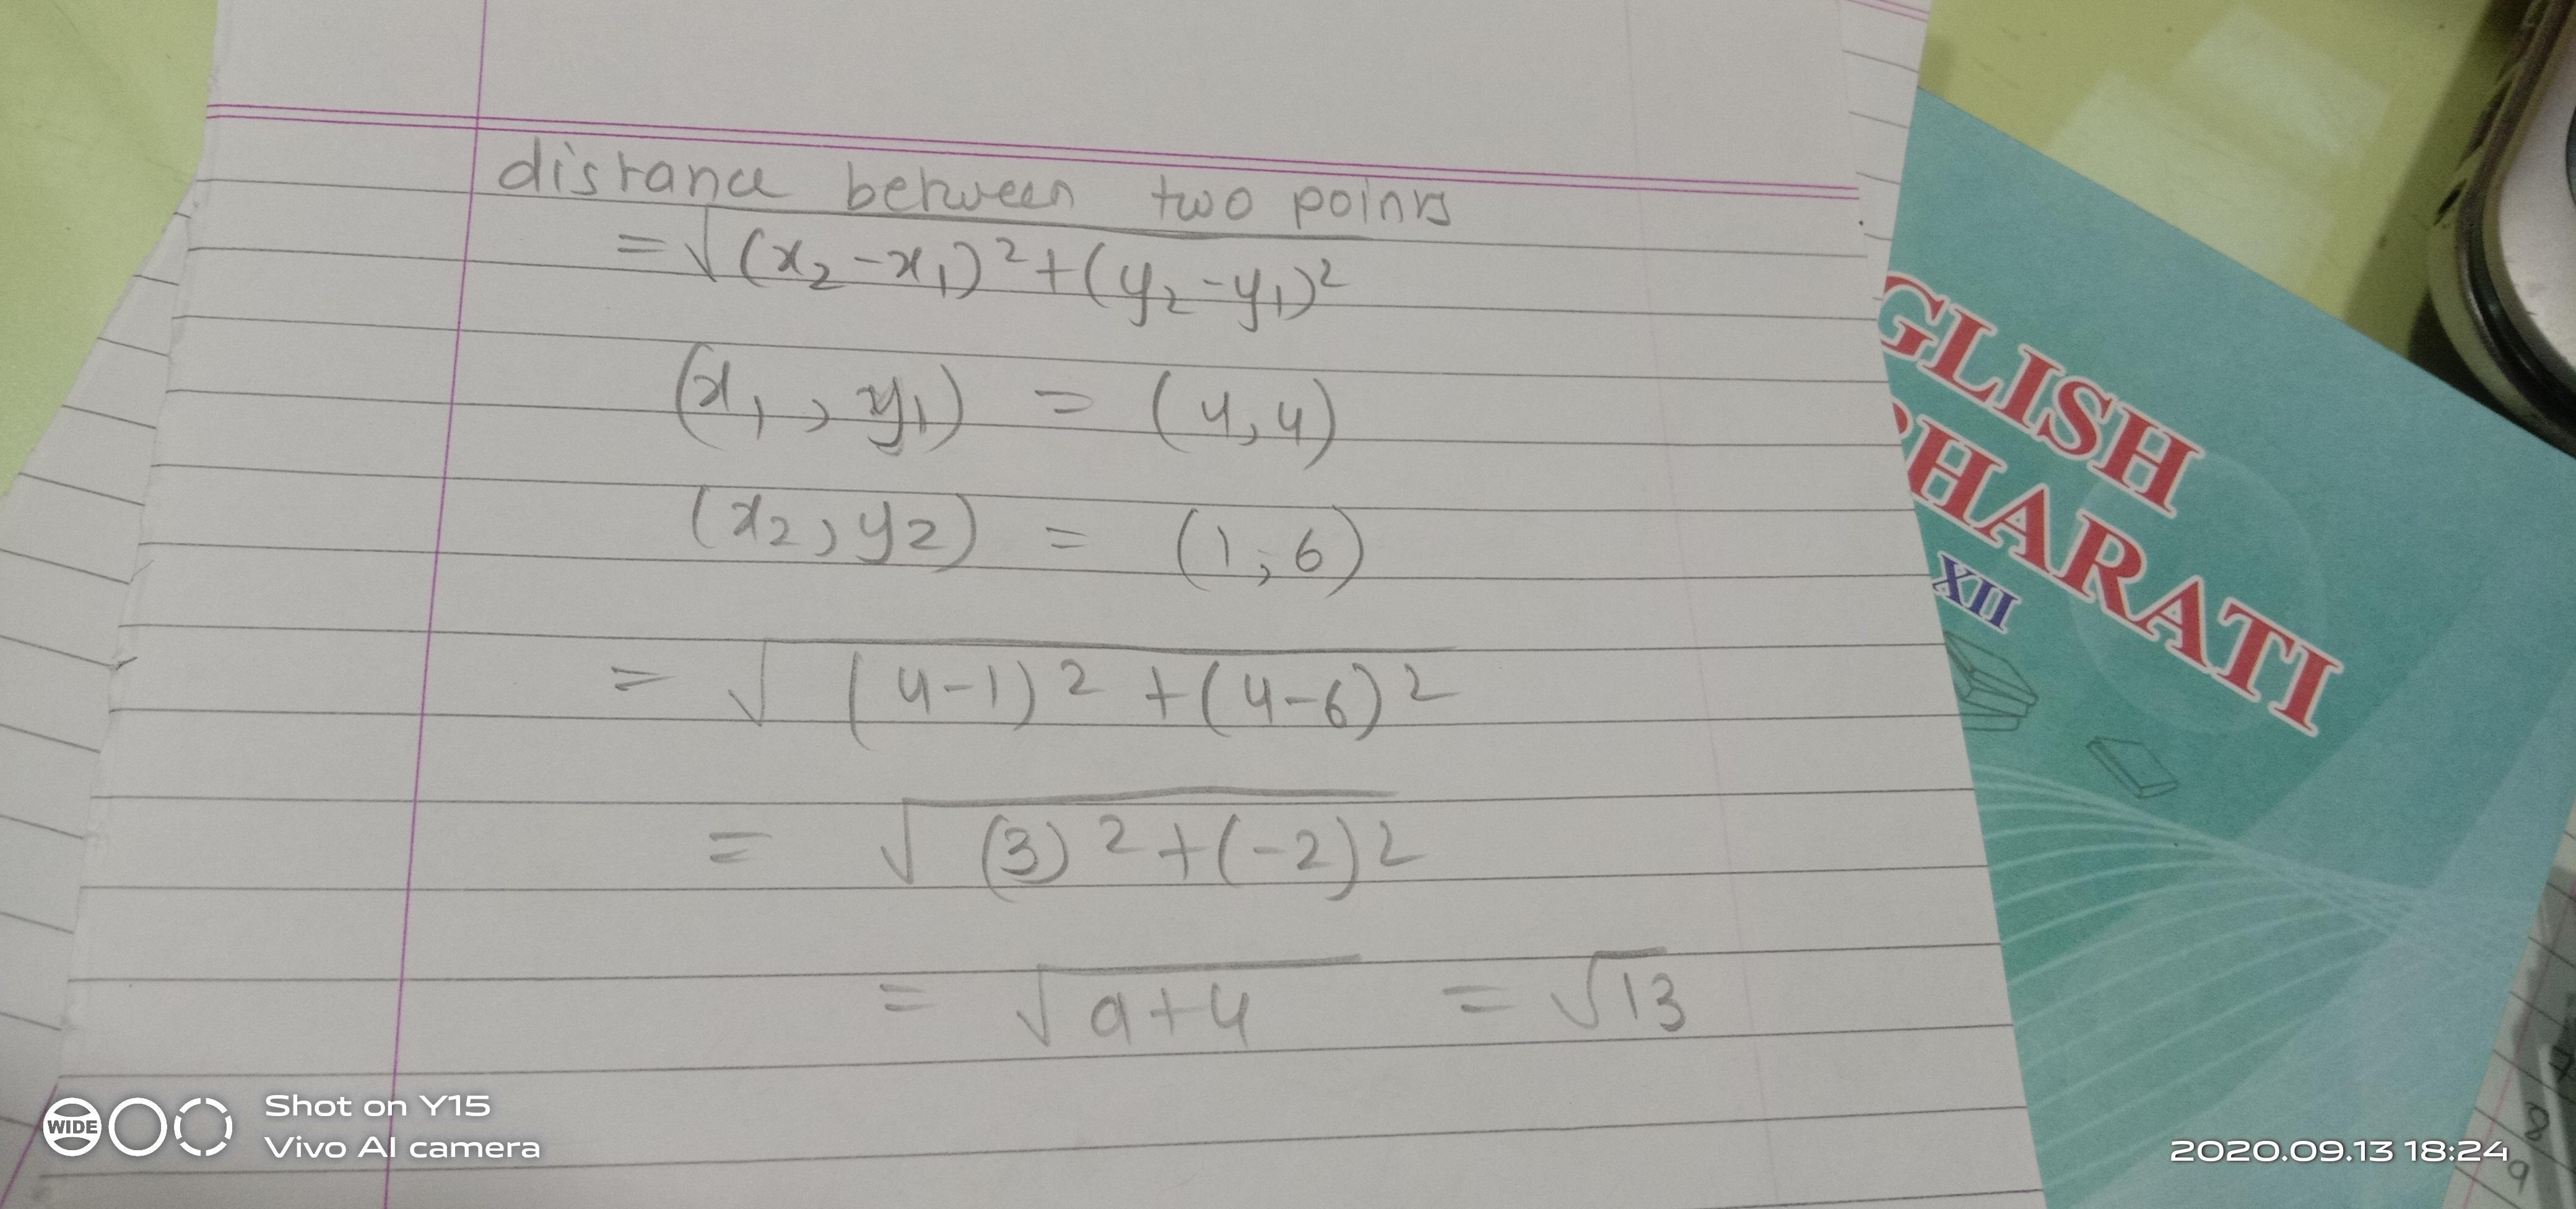 distance between two points
=√(x₂-x₁)²+(y₂-y₁)²
(x₁, y₁) = (4,4)
(x₂,y₂) = (1,6)
= √(4-1)²+(4-6)²
= √(3)²+(-2)²
= √9+4 = √13
GLISH
BHARATI
XII
8
9
WIDE
Shot on Y15
Vivo AI camera
2020.09.13 18:24